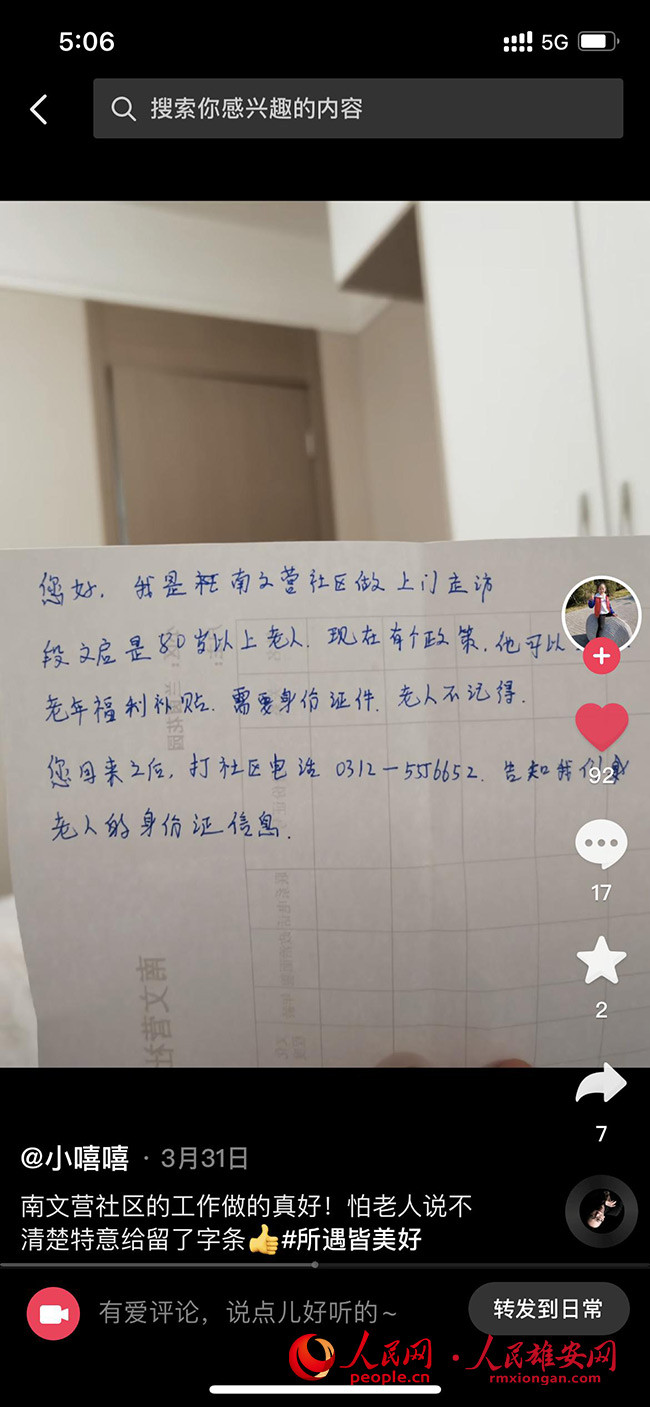 5:06
5G
搜索你感兴趣的内容
您好，我是南文营社区做上门走访
段文启是80岁以上老人．现在有个政策，他可以
老年福利补贴．需要身份证件．老人不记得．
您回来之后，打社区电话 0312-5556652．告知我们
老人的身份证信息．
南文营社
92
17
2
7
@小嘻嘻 · 3月31日
南文营社区的工作做的真好！怕老人说不
清楚特意给留了字条👍#所遇皆美好
有爱评论，说点儿好听的~
转发到日常
人民网 · 人民雄安网
people.cn rmxiongan.com